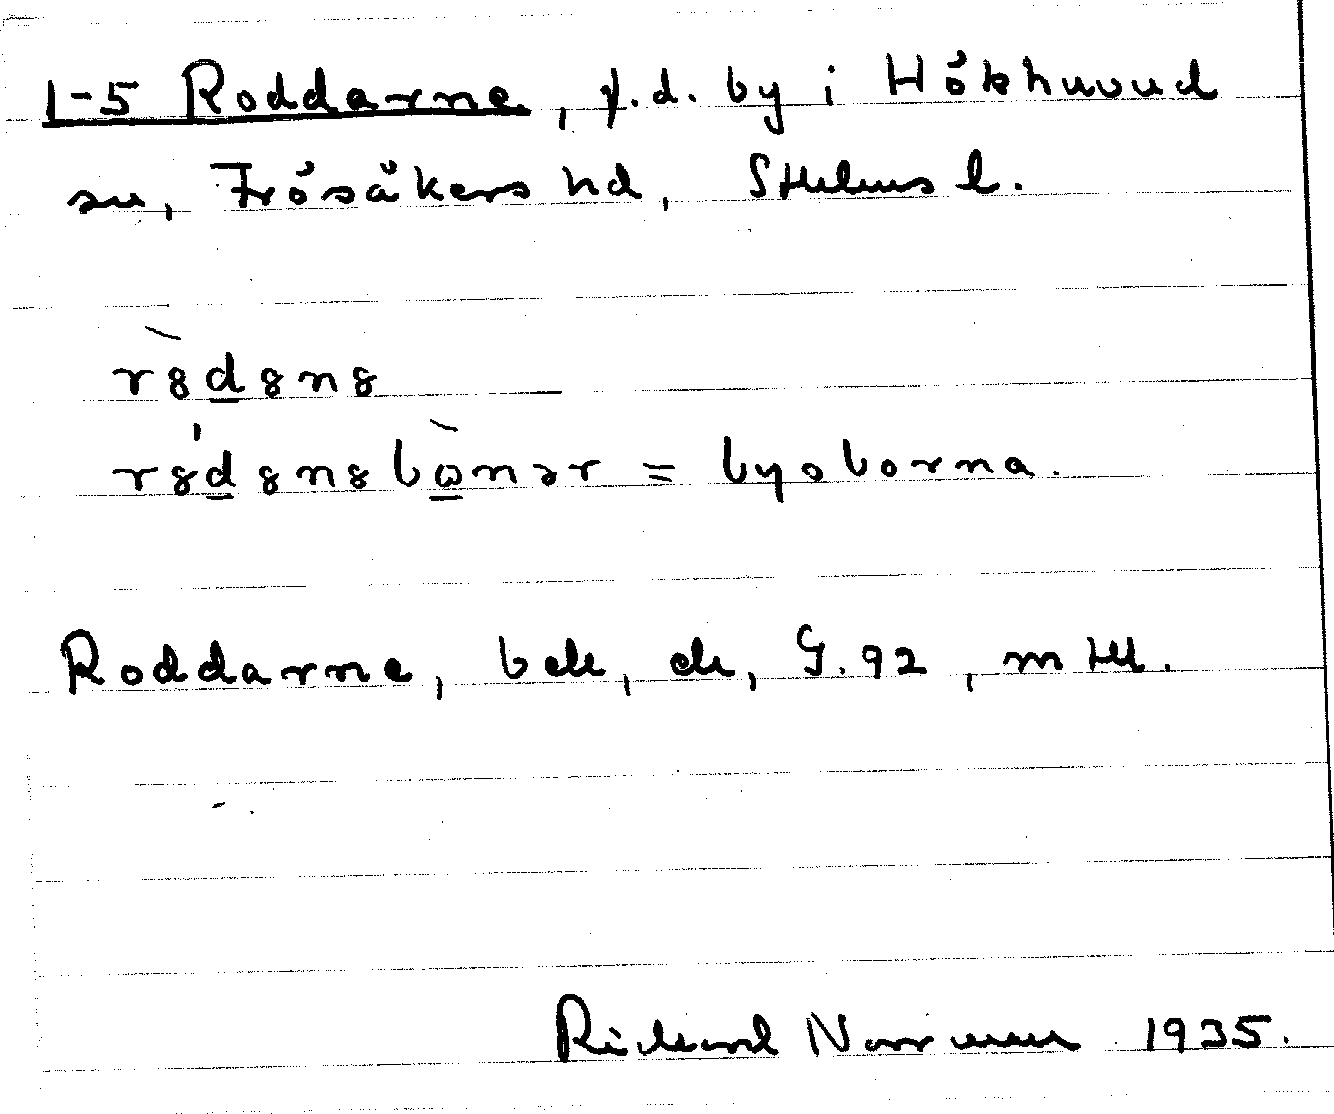 1-5 Roddarne, f.d. by i Hökhuvud
sn, Frösåkers hd, Sthlms l.
rꝸdꝸnꝸ
rꝸdꝸnꝸbωnər = byoborna.
Roddarne, bek, ek, G.92, mtll.
Richard Norrman 1935.